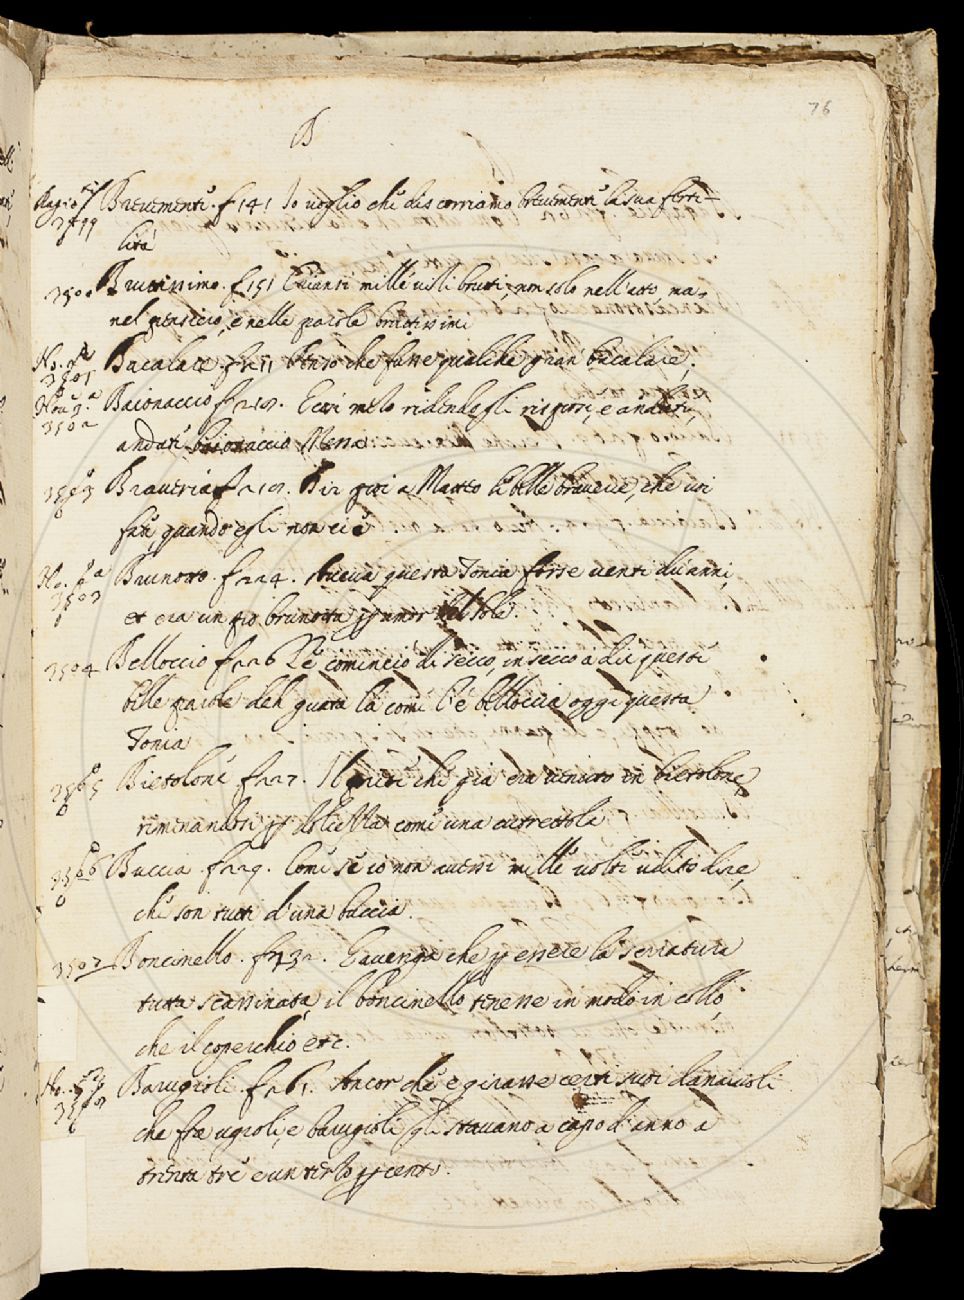 76
B
Brevementi. f 141 Io voglio che discorriamo brevementi la sua ferti-
lità
3500 Bruttissimo. f 151 Quanti mille visi brutti, non solo nell'atto, ma
nel pensiero, e nelle parole bruttissimi
3501 Bacalare. f 211 Penso che fusse qualche gran bacalare.
3502 Baionaccio f 219. Ecci melo ridendogli risposi, e andati,
andati baionaccio Mena
3503 Braveria f 219. Dir poi a Matteo le belle braverie, che voi
fate, quando egli non ci è
Brunotto. f 224. Aveva questa Tonia forse venti du' anni,
et era un po brunotta per amor del sole.
3504 Belloccio f 226 E cominciò di secco, in secco a dir questi
belle parole deh guata là come l'è belloccia oggi questa
Tonia
3505 Bietolone f 227. Il preti che già era venuto in bietolone
riminandosi per dolcezza come una cutrettola
3506 Buccia. f 229. Come se io non avessi mille volte udito dire,
che son tutti d'una buccia.
3507 Boncinello. f 232. Eavenga che per essere la serratura
tutta scassinata, il boncinello tenesse in modo in collo,
che il coperchio etc.
Barugioli. f 261. Ancor che e girasse certi suoi danaiuoli
che fra ugioli, e barugioli gli stavano a capo d'anno a
trenta tre e un terzo per cento.